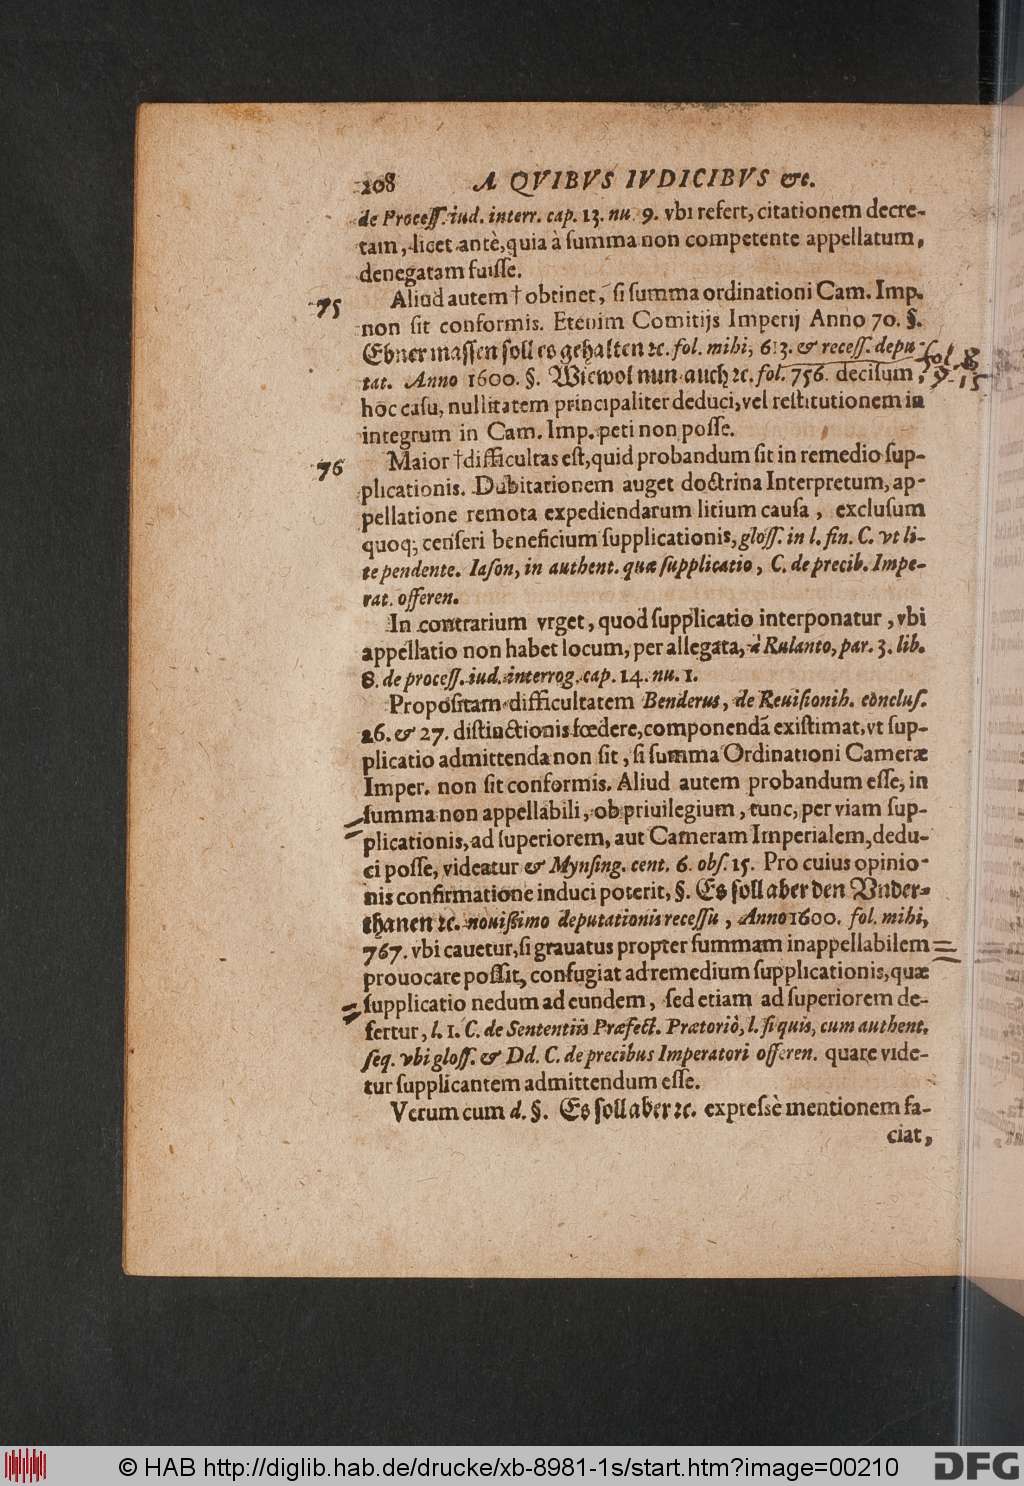 208 A QVIBVS IVDICIBVS &c.
de Proceſſ. iud. interr. cap. 13. nu. 9. vbi refert, citationem decre-
tam, licet antè, quia à ſumma non competente appellatum,
denegatam fuiſſe.
75 Aliud autem † obtinet, ſi ſumma ordinationi Cam. Imp.
non ſit conformis. Etenim Comitijs Imperij Anno 70. §.
Ebner maſſen ſoll es gehalten ꝛc. fol. mihi, 613. & receſſ. depu-
tat. Anno 1600. §. Wiewol nun auch ꝛc. fol. 756. deciſum,
fol. 8
9. 15
hoc caſu, nullitatem principaliter deduci, vel reſtitutionem in
integrum in Cam. Imp. peti non poſſe.
76 Maior † difficultas eſt, quid probandum ſit in remedio ſup-
plicationis. Dubitationem auget doctrina Interpretum, ap-
pellatione remota expediendarum litium cauſa, excluſum
quoq; cenſeri beneficium ſupplicationis, gloſſ. in l. fin. C. vt li-
te pendente. Iaſon, in authent. quæ ſupplicatio, C. de precib. Impe-
rat. offeren.
In contrarium vrget, quod ſupplicatio interponatur, vbi
appellatio non habet locum, per allegata, à Rulanto, par. 3. lib.
8. de proceſſ. iud. interrog. cap. 14. nu. 1.
Propoſitam difficultatem Benderus, de Reuiſionib. concluſ.
26. & 27. diſtinctionis fœdere, componendã exiſtimat, vt ſup-
plicatio admittenda non ſit, ſi ſumma Ordinationi Cameræ
Imper. non ſit conformis. Aliud autem probandum eſſe, in
ſumma non appellabili, ob priuilegium, tunc, per viam ſup-
plicationis, ad ſuperiorem, aut Cameram Imperialem, dedu-
ci poſſe, videatur & Mynſing. cent. 6. obſ. 15. Pro cuius opinio-
nis confirmatione induci poterit, §. Es ſoll aber den Vnder-
thanen ꝛc. nouißimo deputationis receſſu, Anno 1600. fol. mihi,
767. vbi cauetur, ſi grauatus propter ſummam inappellabilem
prouocare poſſit, confugiat ad remedium ſupplicationis, quæ
ſupplicatio nedum ad eundem, ſed etiam ad ſuperiorem de-
fertur, l. 1. C. de Sententiis Præfect. Prætoriò, l. ſi quis, cum authent.
ſeq. vbi gloſſ. & Dd. C. de precibus Imperatori offeren. quare vide-
tur ſupplicantem admittendum eſſe.
Verum cum d. §. Es ſoll aber ꝛc. expreſsè mentionem fa-
ciat,
© HAB http://diglib.hab.de/drucke/xb-8981-1s/start.htm?image=00210
DFG